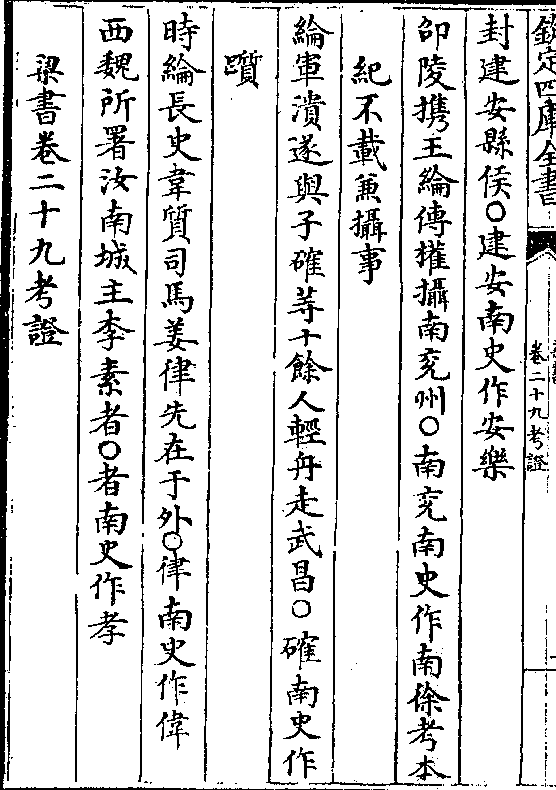 欽定四庫全書
卷二十九考證
封建安縣侯○建安南史作安樂
邵陵攜王綸傳權攝南兗州○南兗南史作南徐考本
紀不載兼攝事
綸軍潰遂與子確等十餘人輕舟走武昌○確南史作
躓
時綸長史韋質司馬姜律先在于外○律南史作偉
西魏所署汝南城主李素者○者南史作孝
梁書卷二十九考證